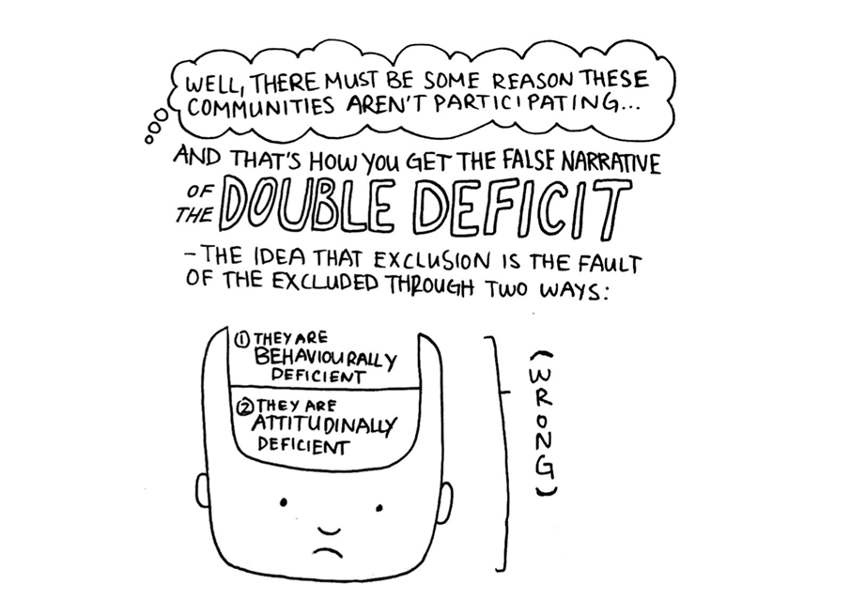 WELL, THERE MUST BE SOME REASON THESE
COMMUNITIES AREN'T PARTICIPATING...
AND THAT'S HOW YOU GET THE FALSE NARRATIVE
OF THE DOUBLE DEFICIT
- THE IDEA THAT EXCLUSION IS THE FAULT
OF THE EXCLUDED THROUGH TWO WAYS:
① THEY ARE
BEHAVIOURALLY
DEFICIENT
② THEY ARE
ATTITUDINALLY
DEFICIENT
(WRONG)